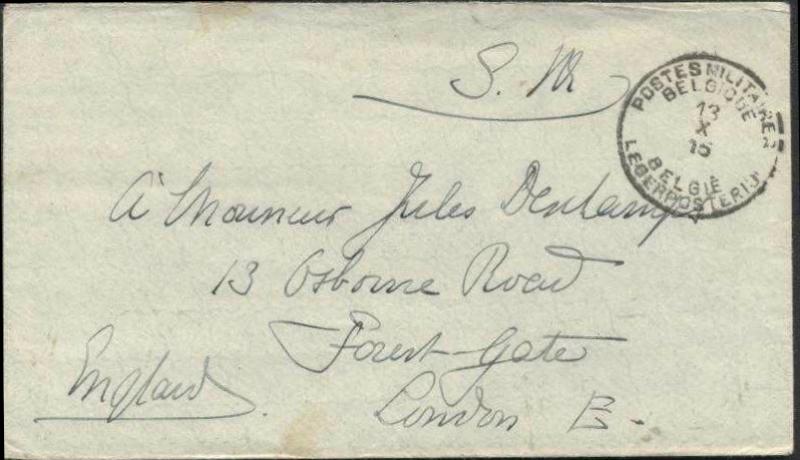 S. M
POSTES MILITAIRES
BELGIQUE
13
X
15
BELGIË
LEGERPOSTERIJ
À Monsieur Jules
13 Osborne Road
Forest-Gate
London E.
England